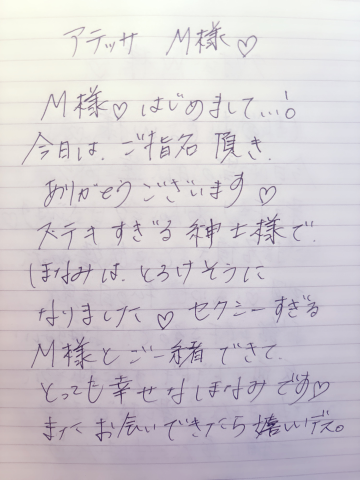 アテッサ M様♡
M様♡はじめまして...!
今日は、ご指名頂き、
ありがとうございます♡
ステキすぎる紳士様で、
ほなみは、とろけそうに
なりました♡ セクシーすぎる
M様とご一緒できて、
とっても幸せなほなみです♡
またお会いできたら嬉しいデス。